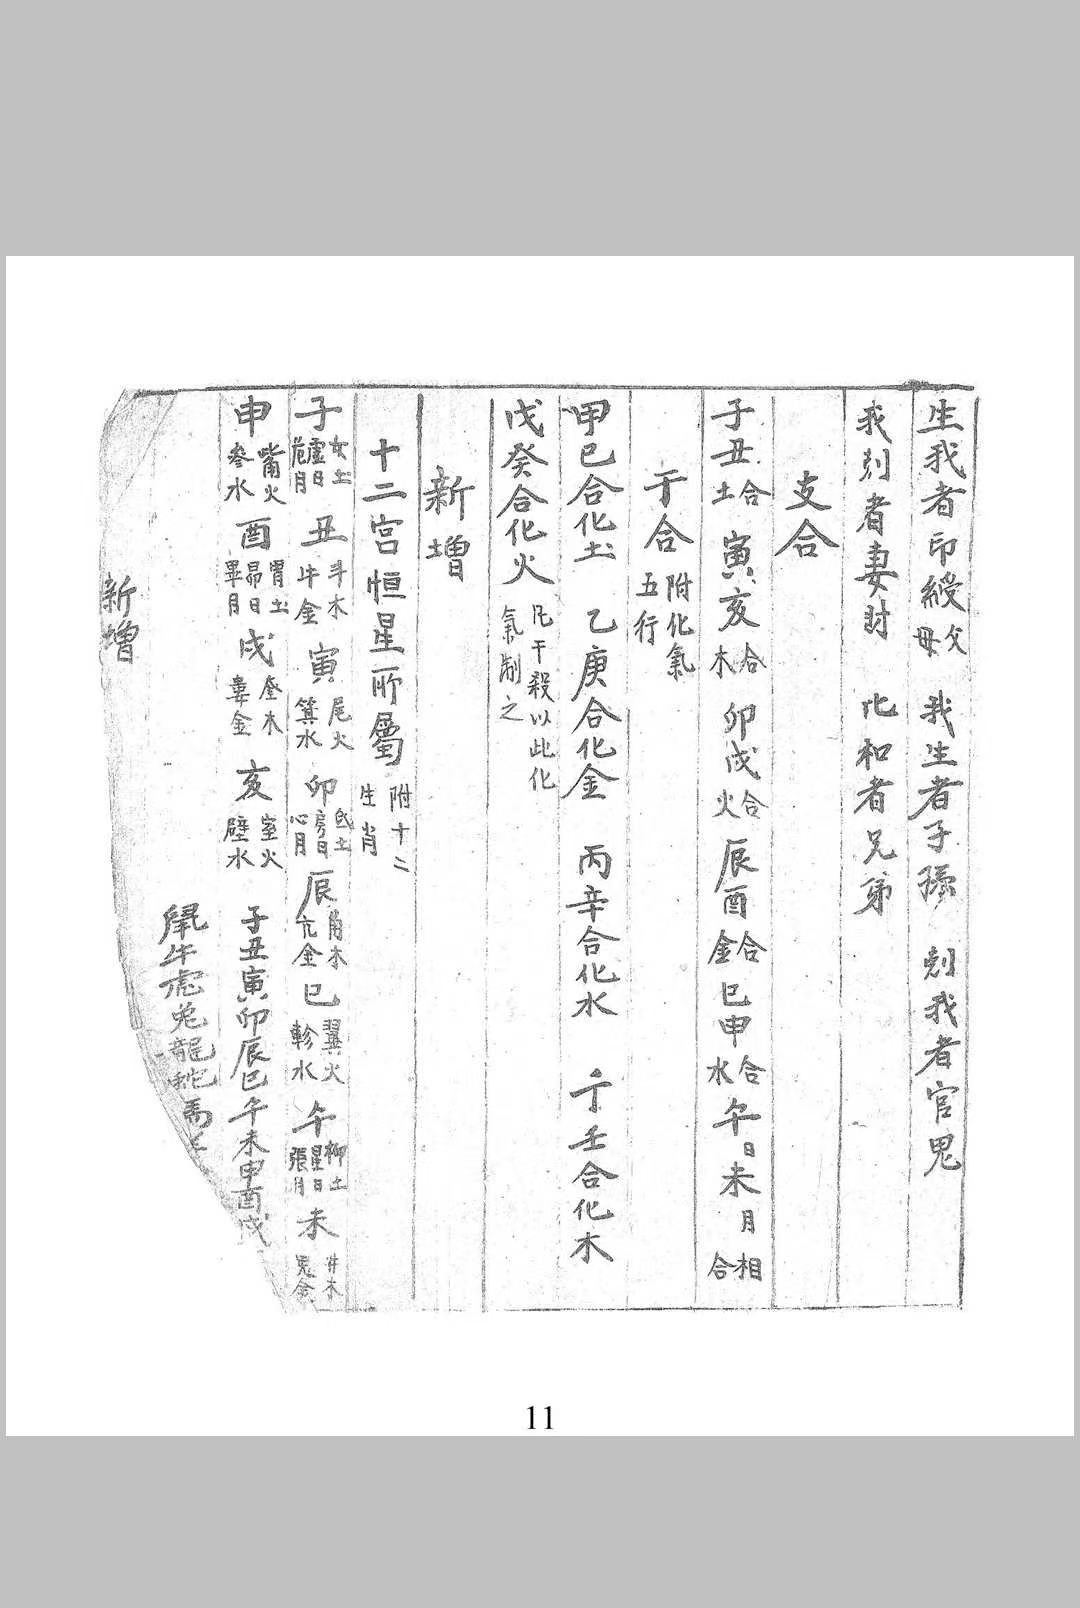 生我者印綬父母 我生者子孫 剋我者官鬼
我剋者妻財 比和者兄弟
支合
子丑合土 寅亥合木 卯戌合火 辰酉合金 巳申合水 午日未月相合
干合附化氣五行
甲己合化土 乙庚合化金 丙辛合化水 丁壬合化木
戊癸合化火 凡干殺以此化氣制之
新增
十二宮恒星所屬附十二生肖
子女土虛日危月 丑斗木牛金 寅尾火箕水 卯氐土房日心月 辰角木亢金 巳翼火軫水 午柳土星日張月 未井木鬼金
申嘴火參水 酉胃土昴日畢月 戌奎木婁金 亥室火壁水 子丑寅卯辰巳午未申酉戌
鼠牛虎兔龍蛇馬
新增
11